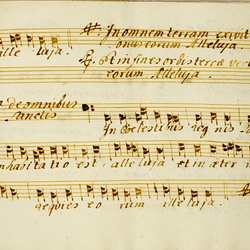 alle luja. ℣. In omnem terram exivit s
onus eorum Alleluja.
℟. et in fines orbis terræ ver
eorum Alleluja.
de omnibus
Sanctis
In coelestibus reg nis
inhabitatio est, alle luja et in æter n
requies eo rum alleluja.